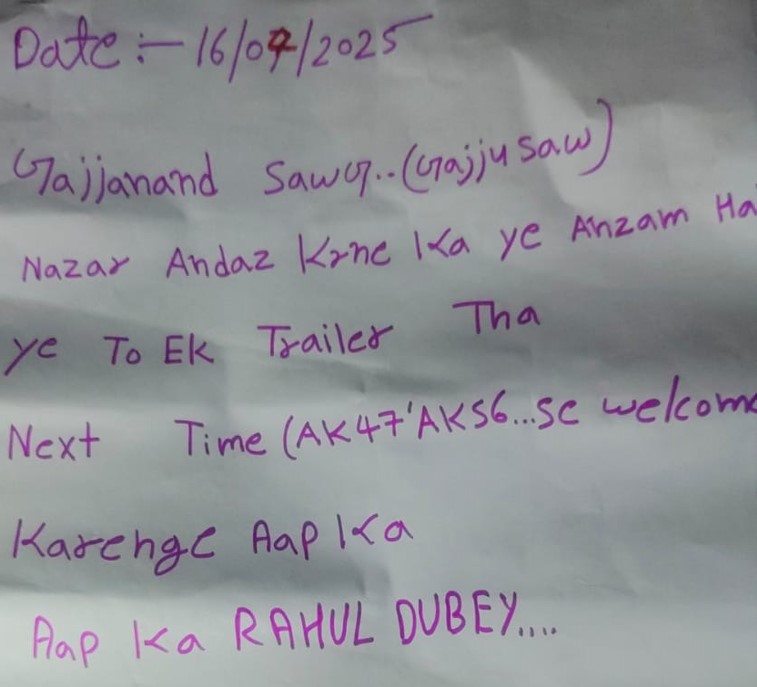 Date :- 16/07/2025
Gajjanand Sawg..(Gajju Saw)
Nazar Andaz Krne Ka ye Anzam Ha
ye To Ek Trailer Tha
Next Time (AK47'AK56...se welcome
Karenge Aap Ka
Aap Ka RAHUL DUBEY....